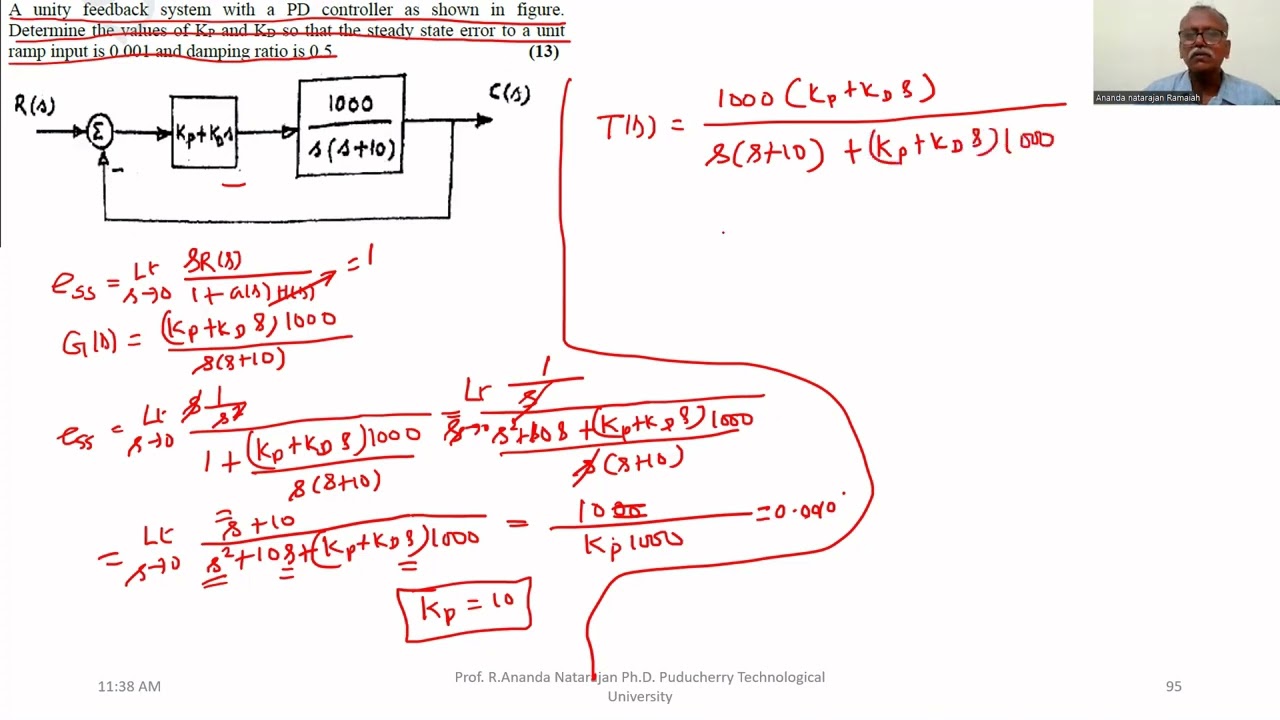 A unity feedback system with a PD controller as shown in figure.
Determine the values of KP and KD so that the steady state error to a unit
ramp input is 0.001 and damping ratio is 0.5.
(13)
R(s)
Σ
-
Kp+KDs
1000
s(s+10)
C(s)
Ananda natarajan Ramaiah
ess = Lt s→0 SR(s) / 1+G(s)H(s) = 1
G(s) = (Kp+KD s)1000 / s(s+10)
ess = Lt s→0 s 1/s² / 1+(Kp+KD s)1000 / s(s+10) = Lt s→0 1/s / s²+10s+(Kp+KD s)1000 / s(s+10)
= Lt s→0 s+10 / s²+10s+(Kp+KD s)1000 = 10 / Kp 1000
Kp = 10
T(s) = 1000(Kp+KD s) / s(s+10)+(Kp+KD s)1000
11:38 AM
Prof. R.Ananda Natarajan Ph.D. Puducherry Technological
University
95